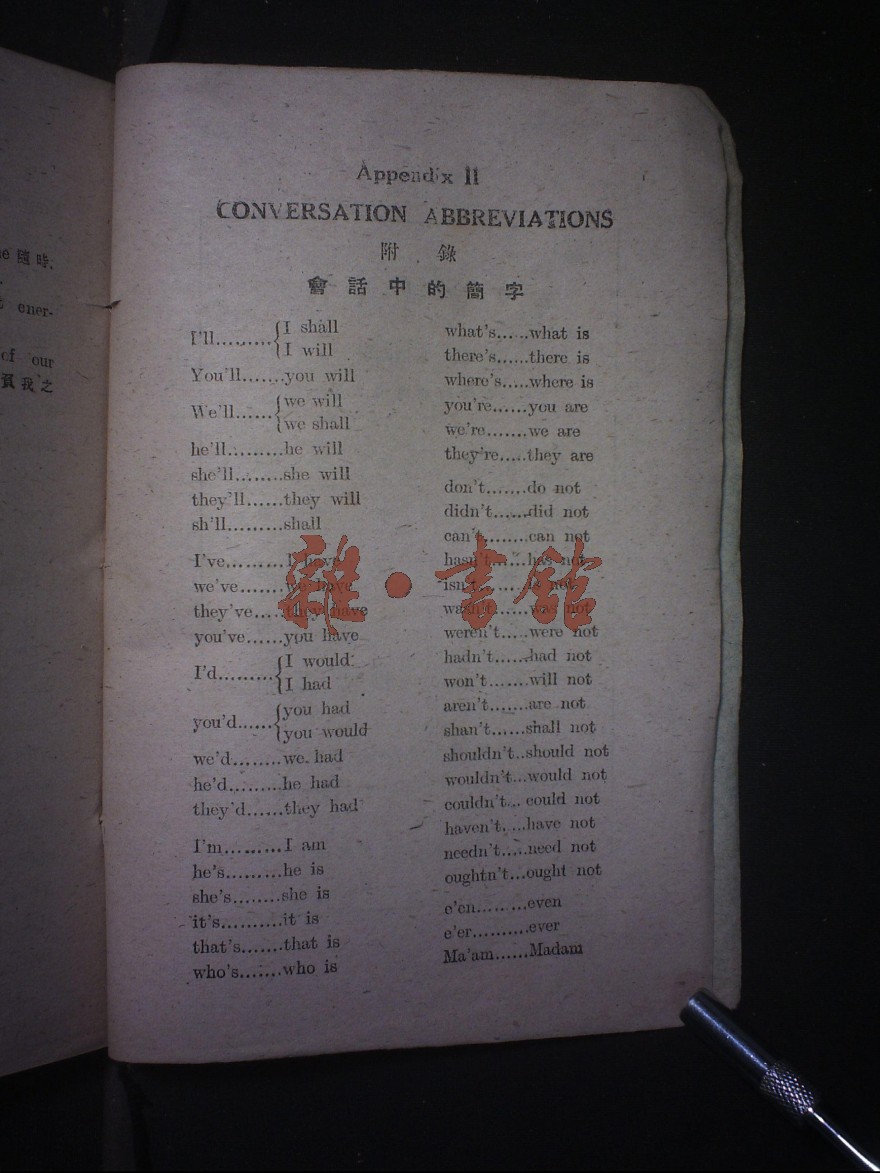 e 隨時,
ener-
of our
我之
Appendix II
CONVERSATION ABBREVIATIONS
附 錄
會 話 中 的 簡 字
I'll.........{I shall
{I will
You'll.......you will
We'll......{we will
{we shall
he'll.........he will
she'll........she will
they'll......they will
sh'll.........shall
I've.........I have
we've.......we have
they've.....they have
you've......you have
I'd.........{I would
{I had
you'd......{you had
{you would
we'd........we had
he'd.........he had
they'd......they had
I'm.........I am
he's.........he is
she's........she is
it's..........it is
that's.......that is
who's.......who is
what's......what is
there's......there is
where's.....where is
you're......you are
we're.......we are
they're.....they are
don't.......do not
didn't......did not
can't........can not
hasn't......has not
isn't........is not
wasn't......was not
weren't.....were not
hadn't......had not
won't.......will not
aren't.......are not
shan't......shall not
shouldn't..should not
wouldn't...would not
couldn't... could not
haven't....have not
needn't.....need not
oughtn't...ought not
e'en.........even
e'er..........ever
Ma'am......Madam
雜·書館